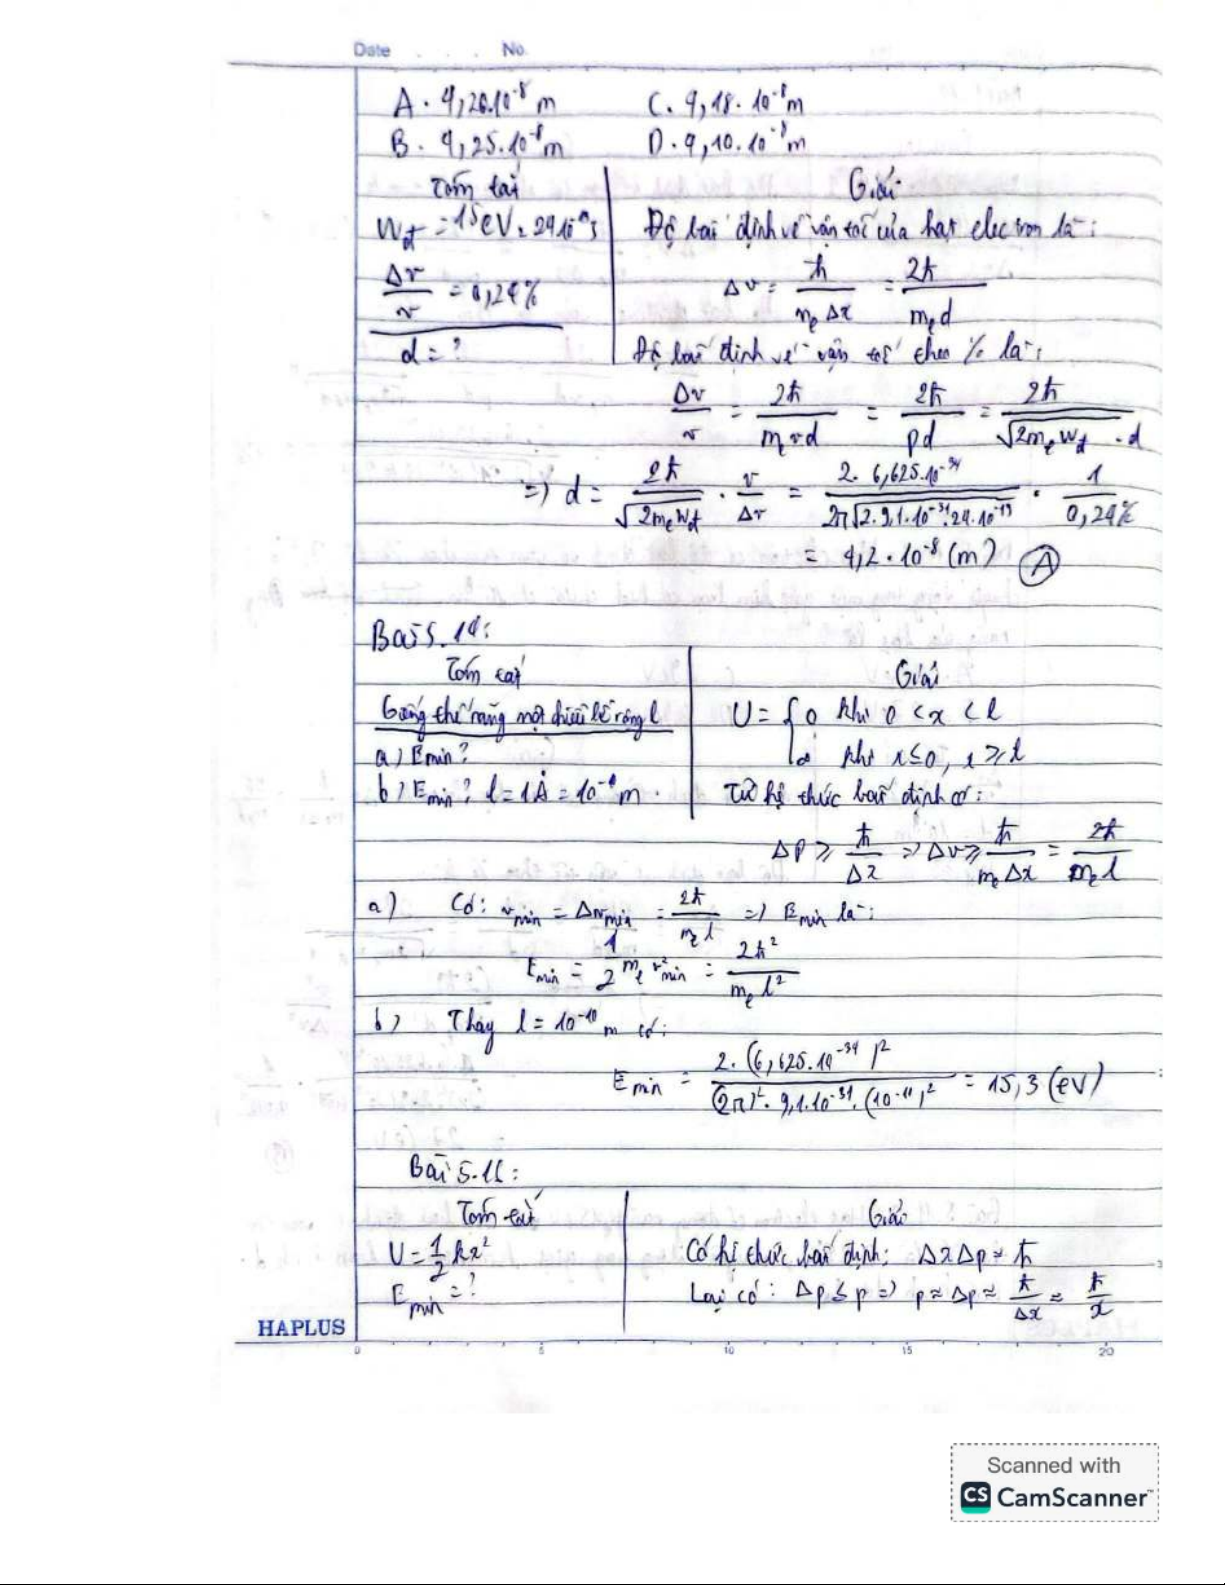 Date No.
A. 4,20.10⁻⁸ m C. 4,18. 10⁻⁸ m
B. 4,25.10⁻⁸ m D. 4,10. 10⁻⁸ m
Tóm tắt Giải
W_đ = 15 eV = 24.10⁻¹⁹ J Độ bất định về vận tốc của hạt electron là:
Δv/v = 0,24% Δv = ħ/(m_e Δx) = 2ħ/(m_e d)
d = ? Độ bất định về vận tốc theo % là:
Δv/v = 2ħ/(m_e v d) = 2ħ/(pd) = 2ħ/(√(2m_e W_đ) . d)
=> d = 2ħ/√(2m_e W_đ) . v/Δv = 2. 6,625.10⁻³⁴/(2π√(2. 9,1.10⁻³¹. 24. 10⁻¹⁹)) . 1/0,24%
= 4,2 . 10⁻⁸ (m) A
Bài 5.14:
Tóm tắt Giải
Giếng thế năng một chiều bề rộng l U = { 0 khi 0 < x < l
a) Emin? ∞ khi x ≤ 0, x ≥ l
b) Emin? l = 1 Å = 10⁻¹⁰ m . Từ hệ thức bất định có:
Δp ≥ ħ/Δx => Δv ≥ ħ/(m_e Δx) = 2ħ/(m_e l)
a) Có: v_min = Δv_min = 2ħ/(m_e l) => Emin là:
E_min = 1/2 m_e v²_min = 2ħ²/(m_e l²)
b) Thay l = 10⁻¹⁰ m có:
E_min = 2. (6,625.10⁻³⁴)²/((2π)². 9,1.10⁻³¹. (10⁻¹⁰)²) = 15,3 (eV)
Bài 5.16:
Tóm tắt Giải
U = 1/2 kx² Có hệ thức bất định: ΔxΔp ≈ ħ
E_min = ? Lại có: Δp ≤ p => p ≈ Δp ≈ ħ/Δx ≈ ħ/x
HAPLUS
0 5 10 15 20
Scanned with
CS CamScanner